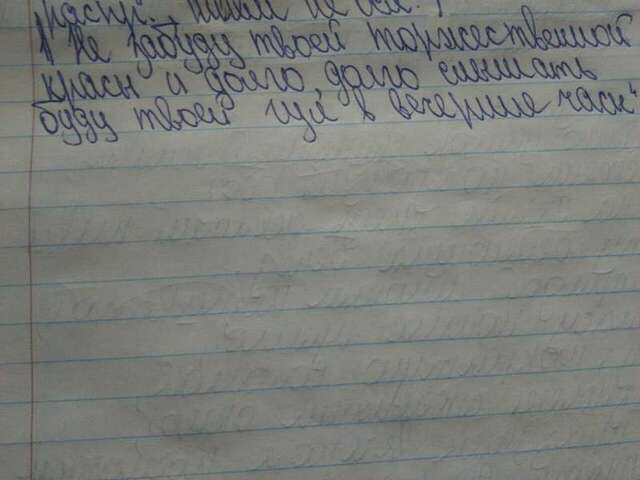 не
Не забуду твоей торжественной
красы и долго, долго слышать
буду твой гул в вечерние часы"